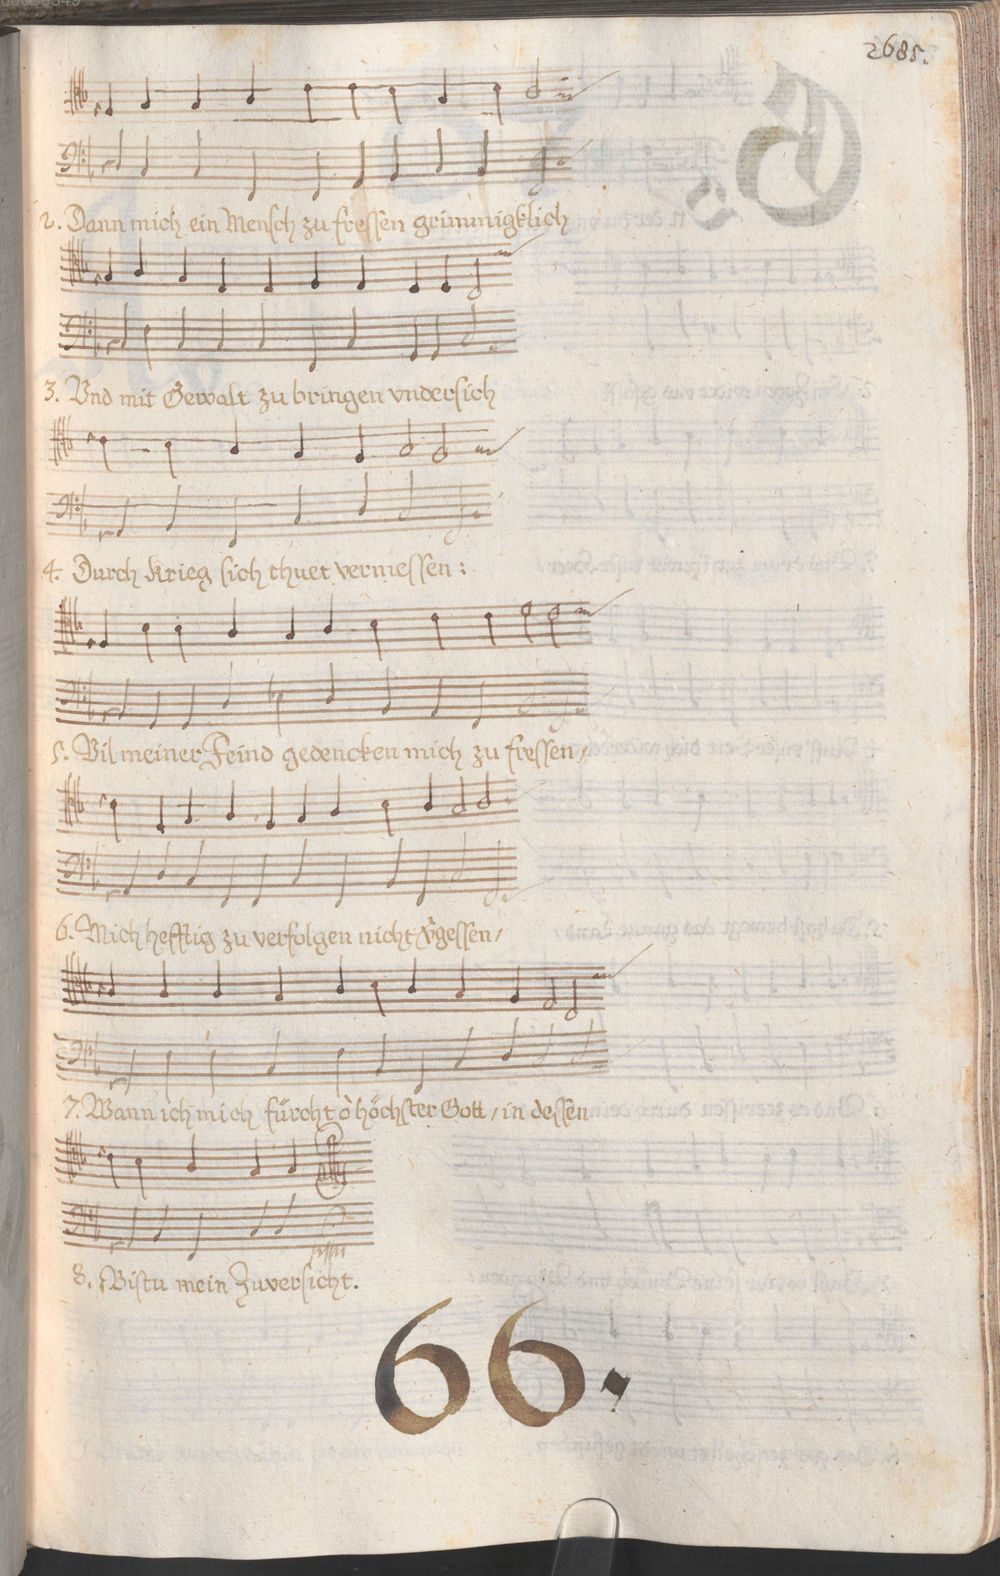 268r.
2. Dann mich ein Mensch zu fressen grimmigklich
3. Vnd mit Gewalt zu bringen vndersich
4. Durch Krieg sich thuet vermessen:
5. Vil meiner Feind gedencken mich zu fressen/
6. Mich hefftig zu verfolgen nicht
7. Wann ich mich fürcht ò höchster Gott/ in dessen
8. Bistu mein Zuversicht.
66.